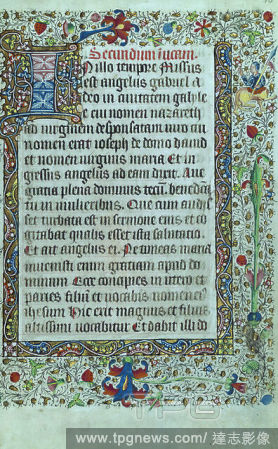 Secundum lucam
In illo tempore Missus
est angelus gabriel a
deo in civitatem galylee
e cui nomen nazareth
ad virginem desponsatam viro cui
nomen erat ioseph de domo david
et nomen virginis maria Et in
gressus angelus ad eam dixit Aue
gratia plena dominus tecu benedicta
tu in mulieribus Que cum audis
set turbata est in sermone eius et co
gitabat qualis esset ista salutatio
Et ait angelus ei Ne timeas maria
invenisti enim gratiam apud do
minum Ecce concipies in utero et
paries filiu et vocabis nomen e
ihesum Hic erit magnus et filius
altissimi vocabitur Et dabit illi do
TPG
www.tpgnews.com/ 達志影像